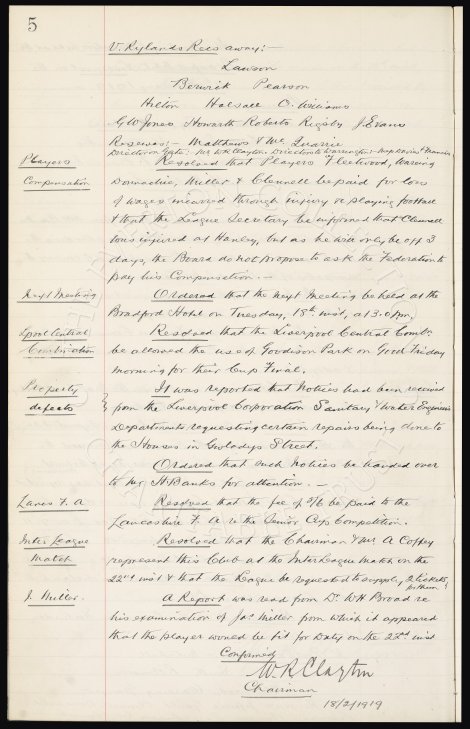 5
V. Rylands Recs away:—
Lawson
Berwick Pearson
Hilton Halsall O. Williams
G W Jones Howarth Roberts Rigsby J. Evans
Reserves:— Matthews & Mc Quarrie
Director Gate: Mr W R Clayton. Directors to Warrington:
Players Compensation
Resolved that Players Fleetwood, Wareing
Donnachie, Miller & Clennell be paid for loss
of wages incurred through injury or playing football
& that the League Secretary be informed that Clennell
was injured at Hanley, but as he will only be off 3
days, the Board do not propose to ask the Federation to
pay his Compensation.—
Next Meeting
Ordered that the next Meeting be held at the
Bradford Hotel on Tuesday, 18th inst, at 3.0pm.
Lpool Central Combination
Resolved that the Liverpool Central Combn
be allowed the use of Goodison Park on Good Friday
morning for their Cup Final.
Property defects
It was reported that Notices had been received
from the Liverpool Corporation Sanitary & Water Engineers
Departments requesting certain repairs being done to
the Houses in Gwladys Street.
Ordered that such Notices be handed over
to Mr H Banks for attention.—
Lancs F. A
Resolved that the fee of 5/6 be paid to the
Lancashire F. A. re the Senior Cup Competition.
Inter League Match
Resolved that the Chairman & Mr A Coffey
represent this Club at the Inter League Match on the
22nd inst & that the League be requested to supply 2 tickets
for them.
J. Miller.
A Report was read from Dr. W H Broad re
his examination of Jas Miller from which it appeared
that the player would be fit for duty on the 22nd inst
Confirmed
W. R Clayton
Chairman
18/2/1919